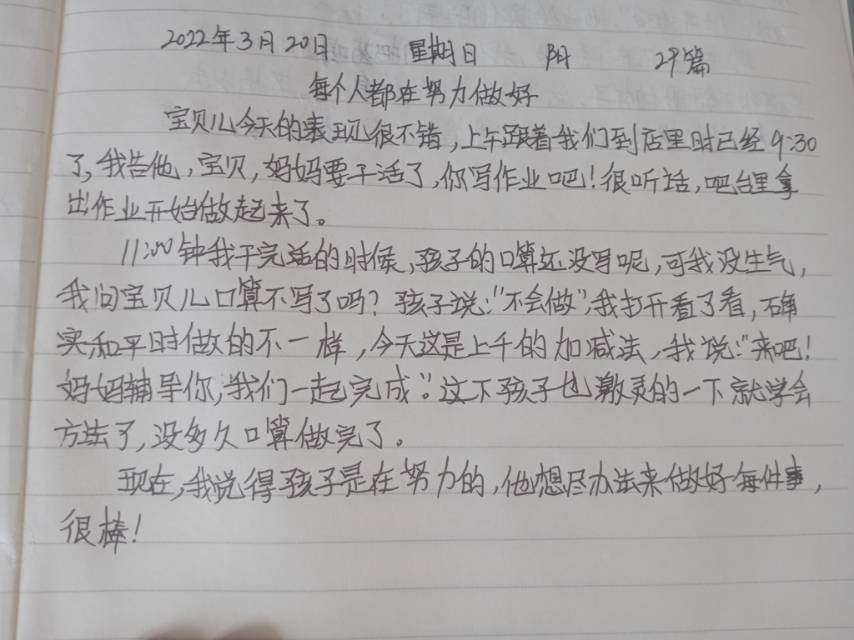 2022年3月20日 星期日 阳 29篇
每个人都在努力做好
宝贝儿今天的表现很不错，上午跟着我们到店里时已经9:30
了，我告他，宝贝，妈妈要干活了，你写作业吧！很听话，吧台里拿
出作业开始做起来了。
11:00钟我干完活的时候，孩子的口算还没写呢，可我没生气，
我问宝贝儿口算不写了吗？孩子说："不会做"，我打开看了看，确
实和平时做的不一样，今天这是上千的加减法，我说："来吧！
妈妈辅导你，我们一起完成"。这下孩子也激灵的一下就学会
方法了，没多久口算做完了。
现在，我觉得孩子是在努力的，他想尽办法来做好每件事，
很棒！